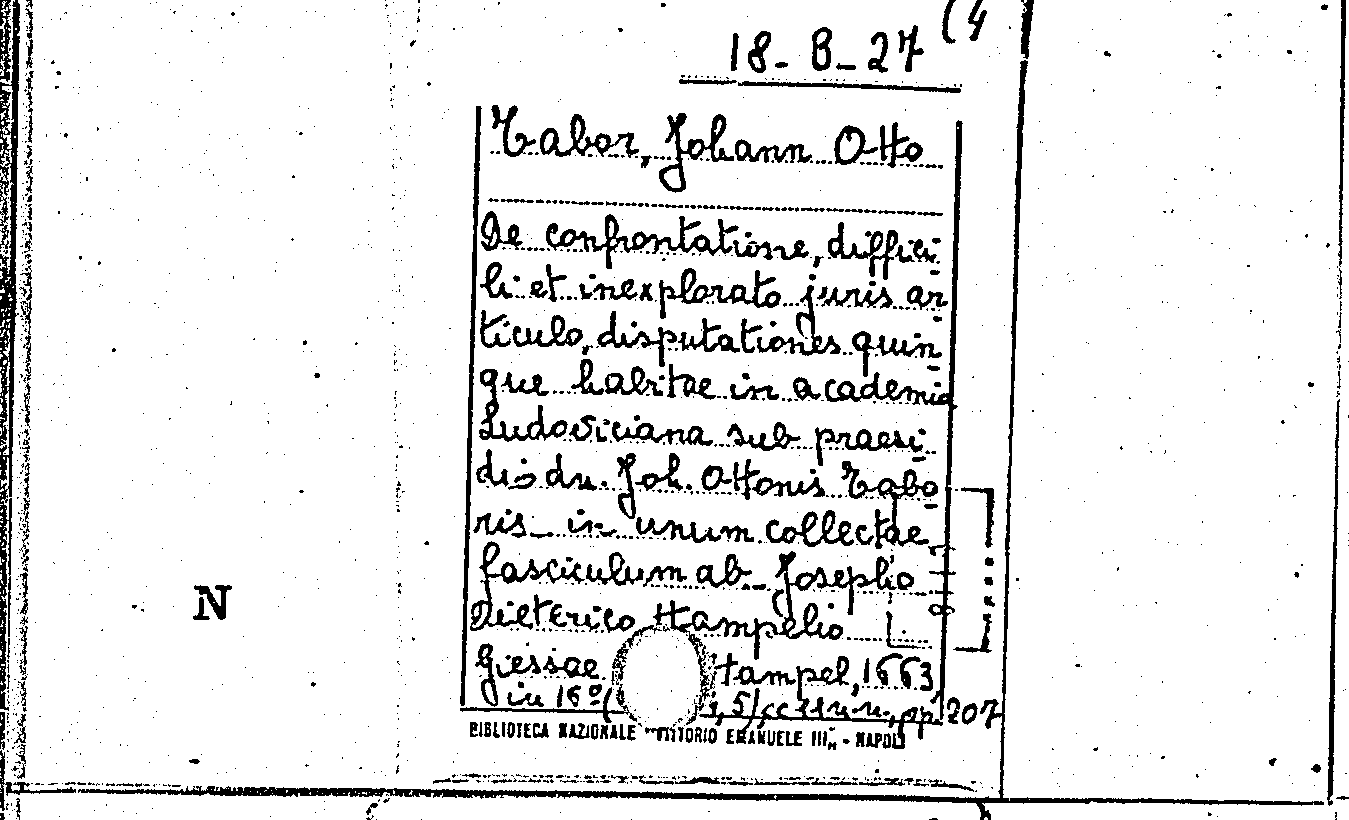 (4
18-B-27
Tabor, Johann Otto
De confrontatione, diffici
li et inexplorato juris ar
ticulo, disputationes quin
que habitae in academia
Ludoviciana sub praesi
dio dn. Joh. Ottonis Tabo
ris in unum collectae
fasciculum ab Josepho
Dieterico Hampelio
Giessae Hampel, 1663
in 16º( 5) cc n.n., pp 207
BIBLIOTECA NAZIONALE VITTORIO EMANUELE III - NAPOLI
N